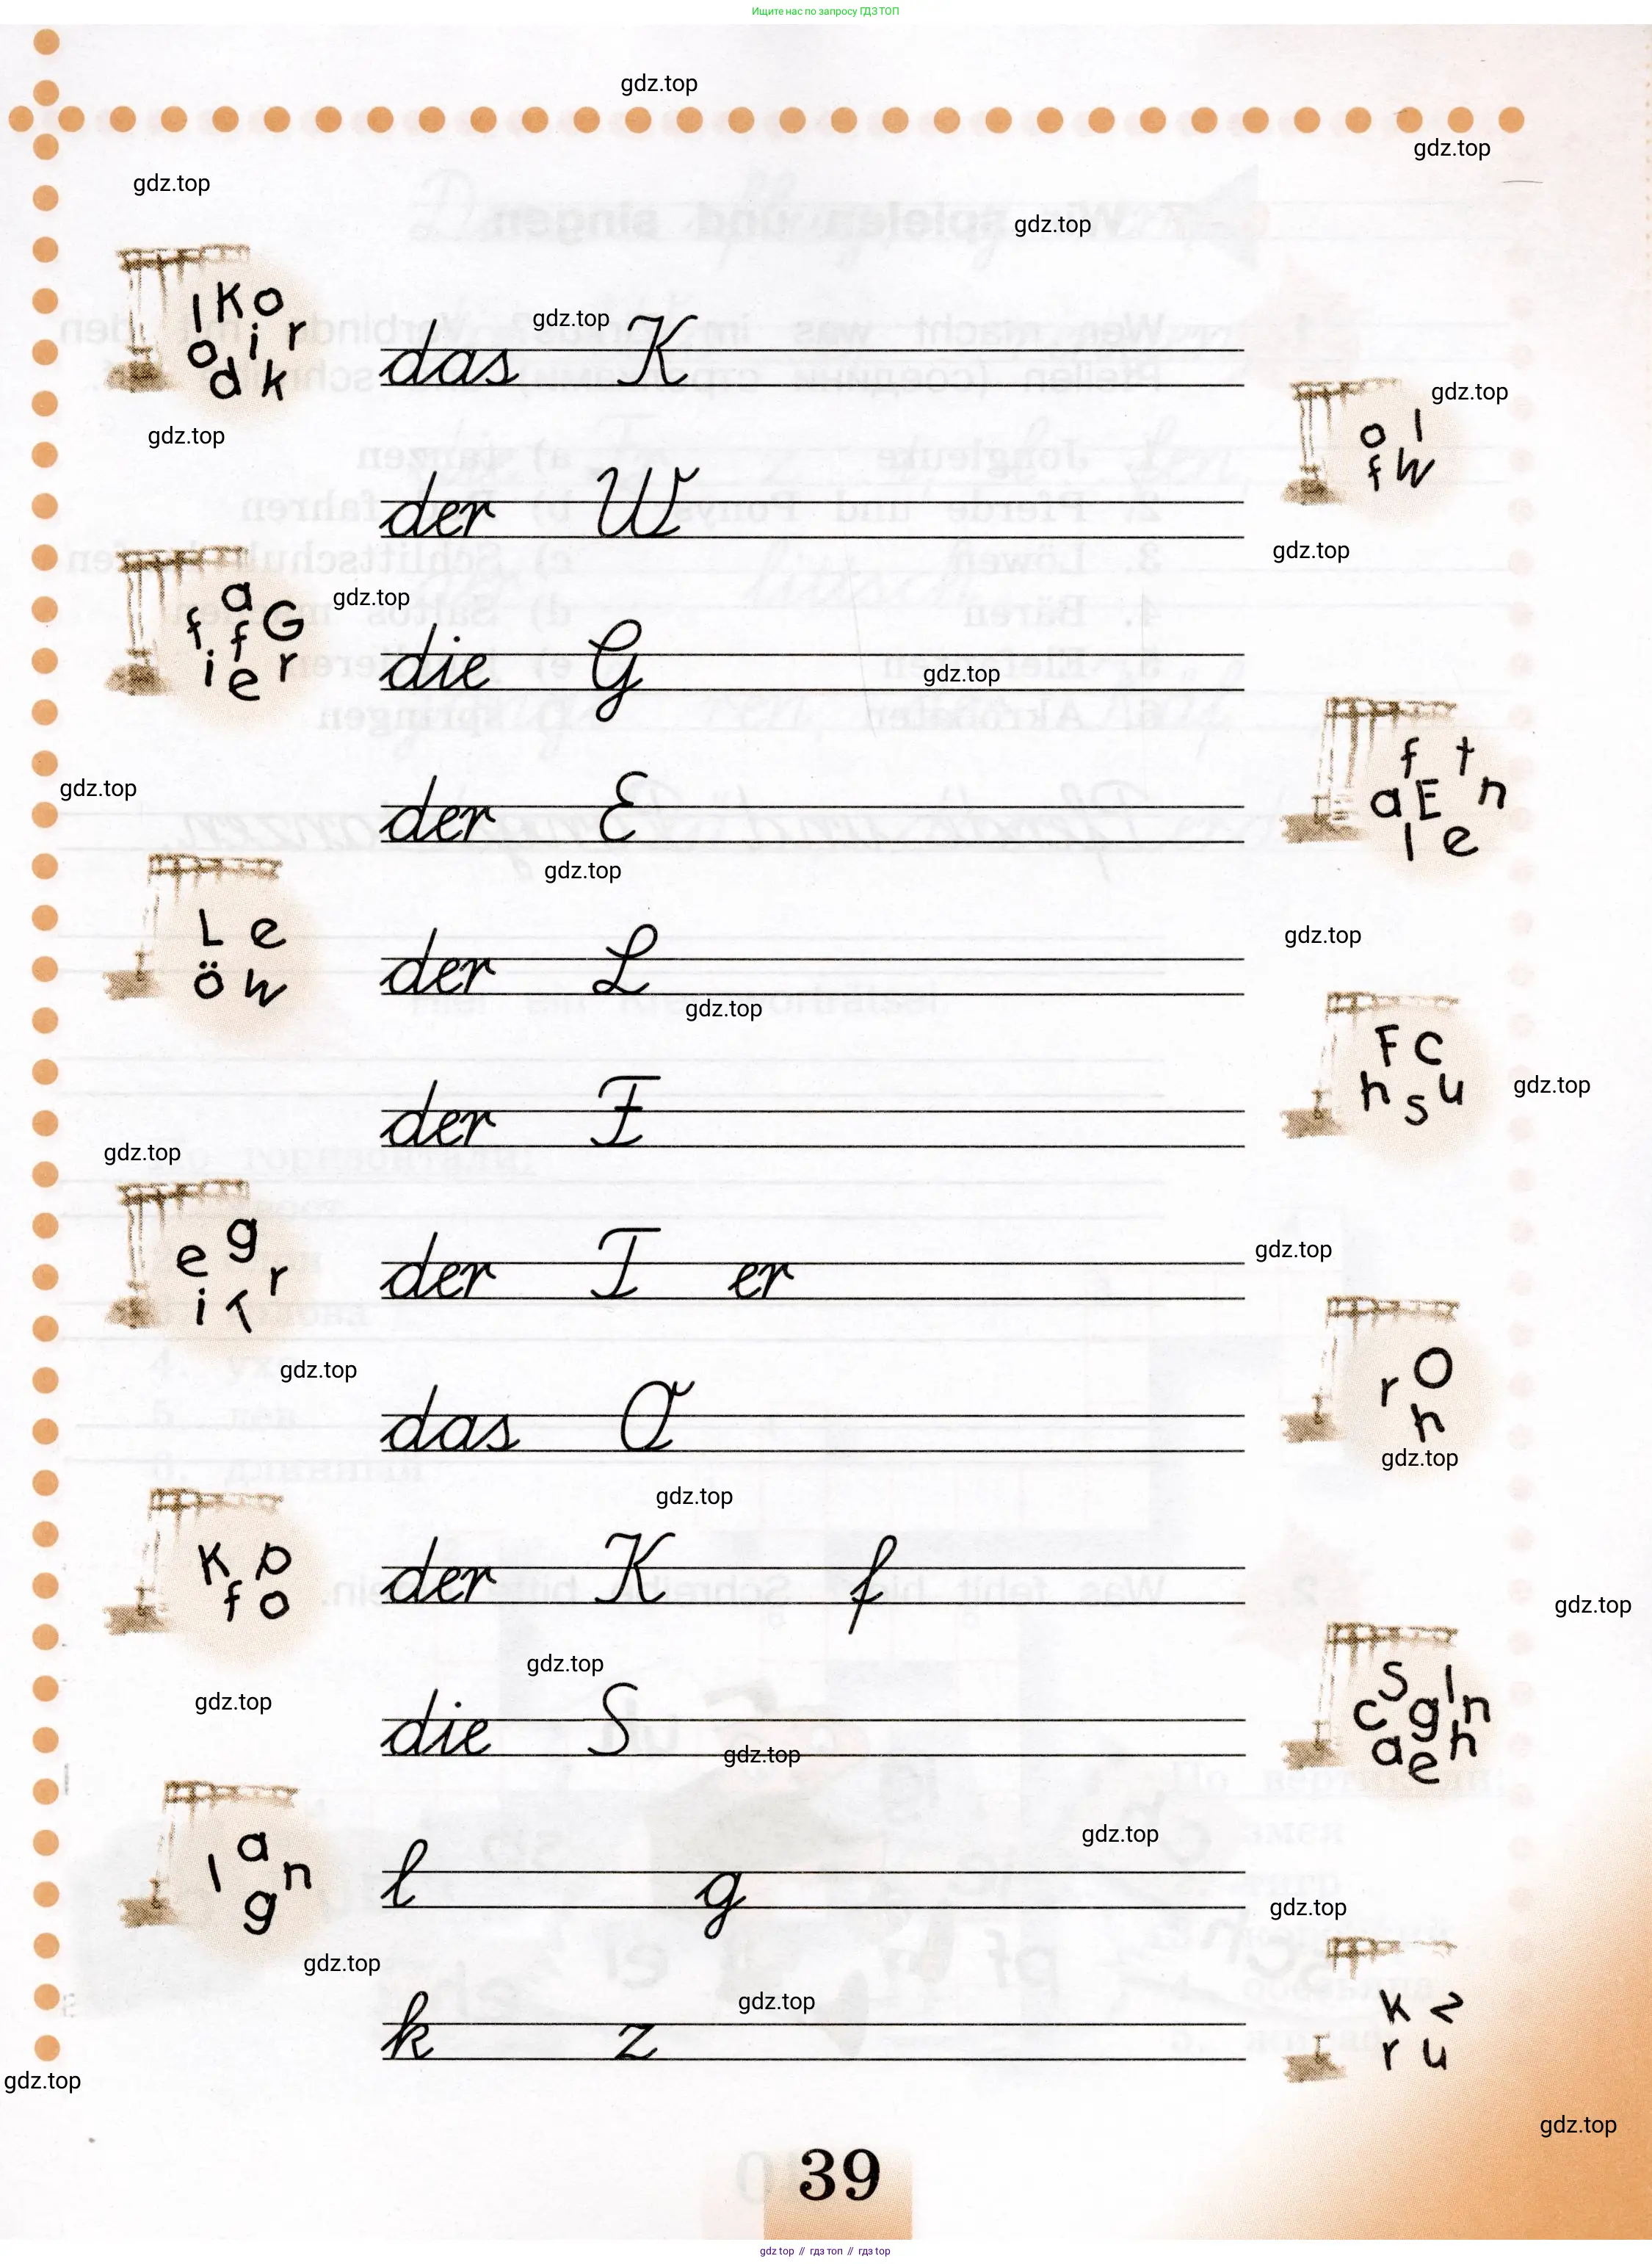 Ищите нас по запросу ГДЗ ТОП
gdz.top
gdz.top
gdz.top
gdz.top
l K o
o i r
d k
gdz.top
das K
gdz.top
gdz.top
o l
f W
der W
gdz.top
a
f f G
i e r
gdz.top
die G
gdz.top
f t
a E n
l e
gdz.top
der E
gdz.top
L e
ö w
gdz.top
der L
gdz.top
F C
h s u
gdz.top
der F
gdz.top
e g
i T r
gdz.top
der T er
gdz.top
r O
h
das O
gdz.top
gdz.top
K p
f o
der K f
gdz.top
gdz.top
gdz.top
S l
c g n
a e h
die S
gdz.top
a
l n
g
gdz.top
l g
gdz.top
gdz.top
k z
r u
gdz.top
k z
gdz.top
gdz.top
39
gdz top // гдз топ // гдз top